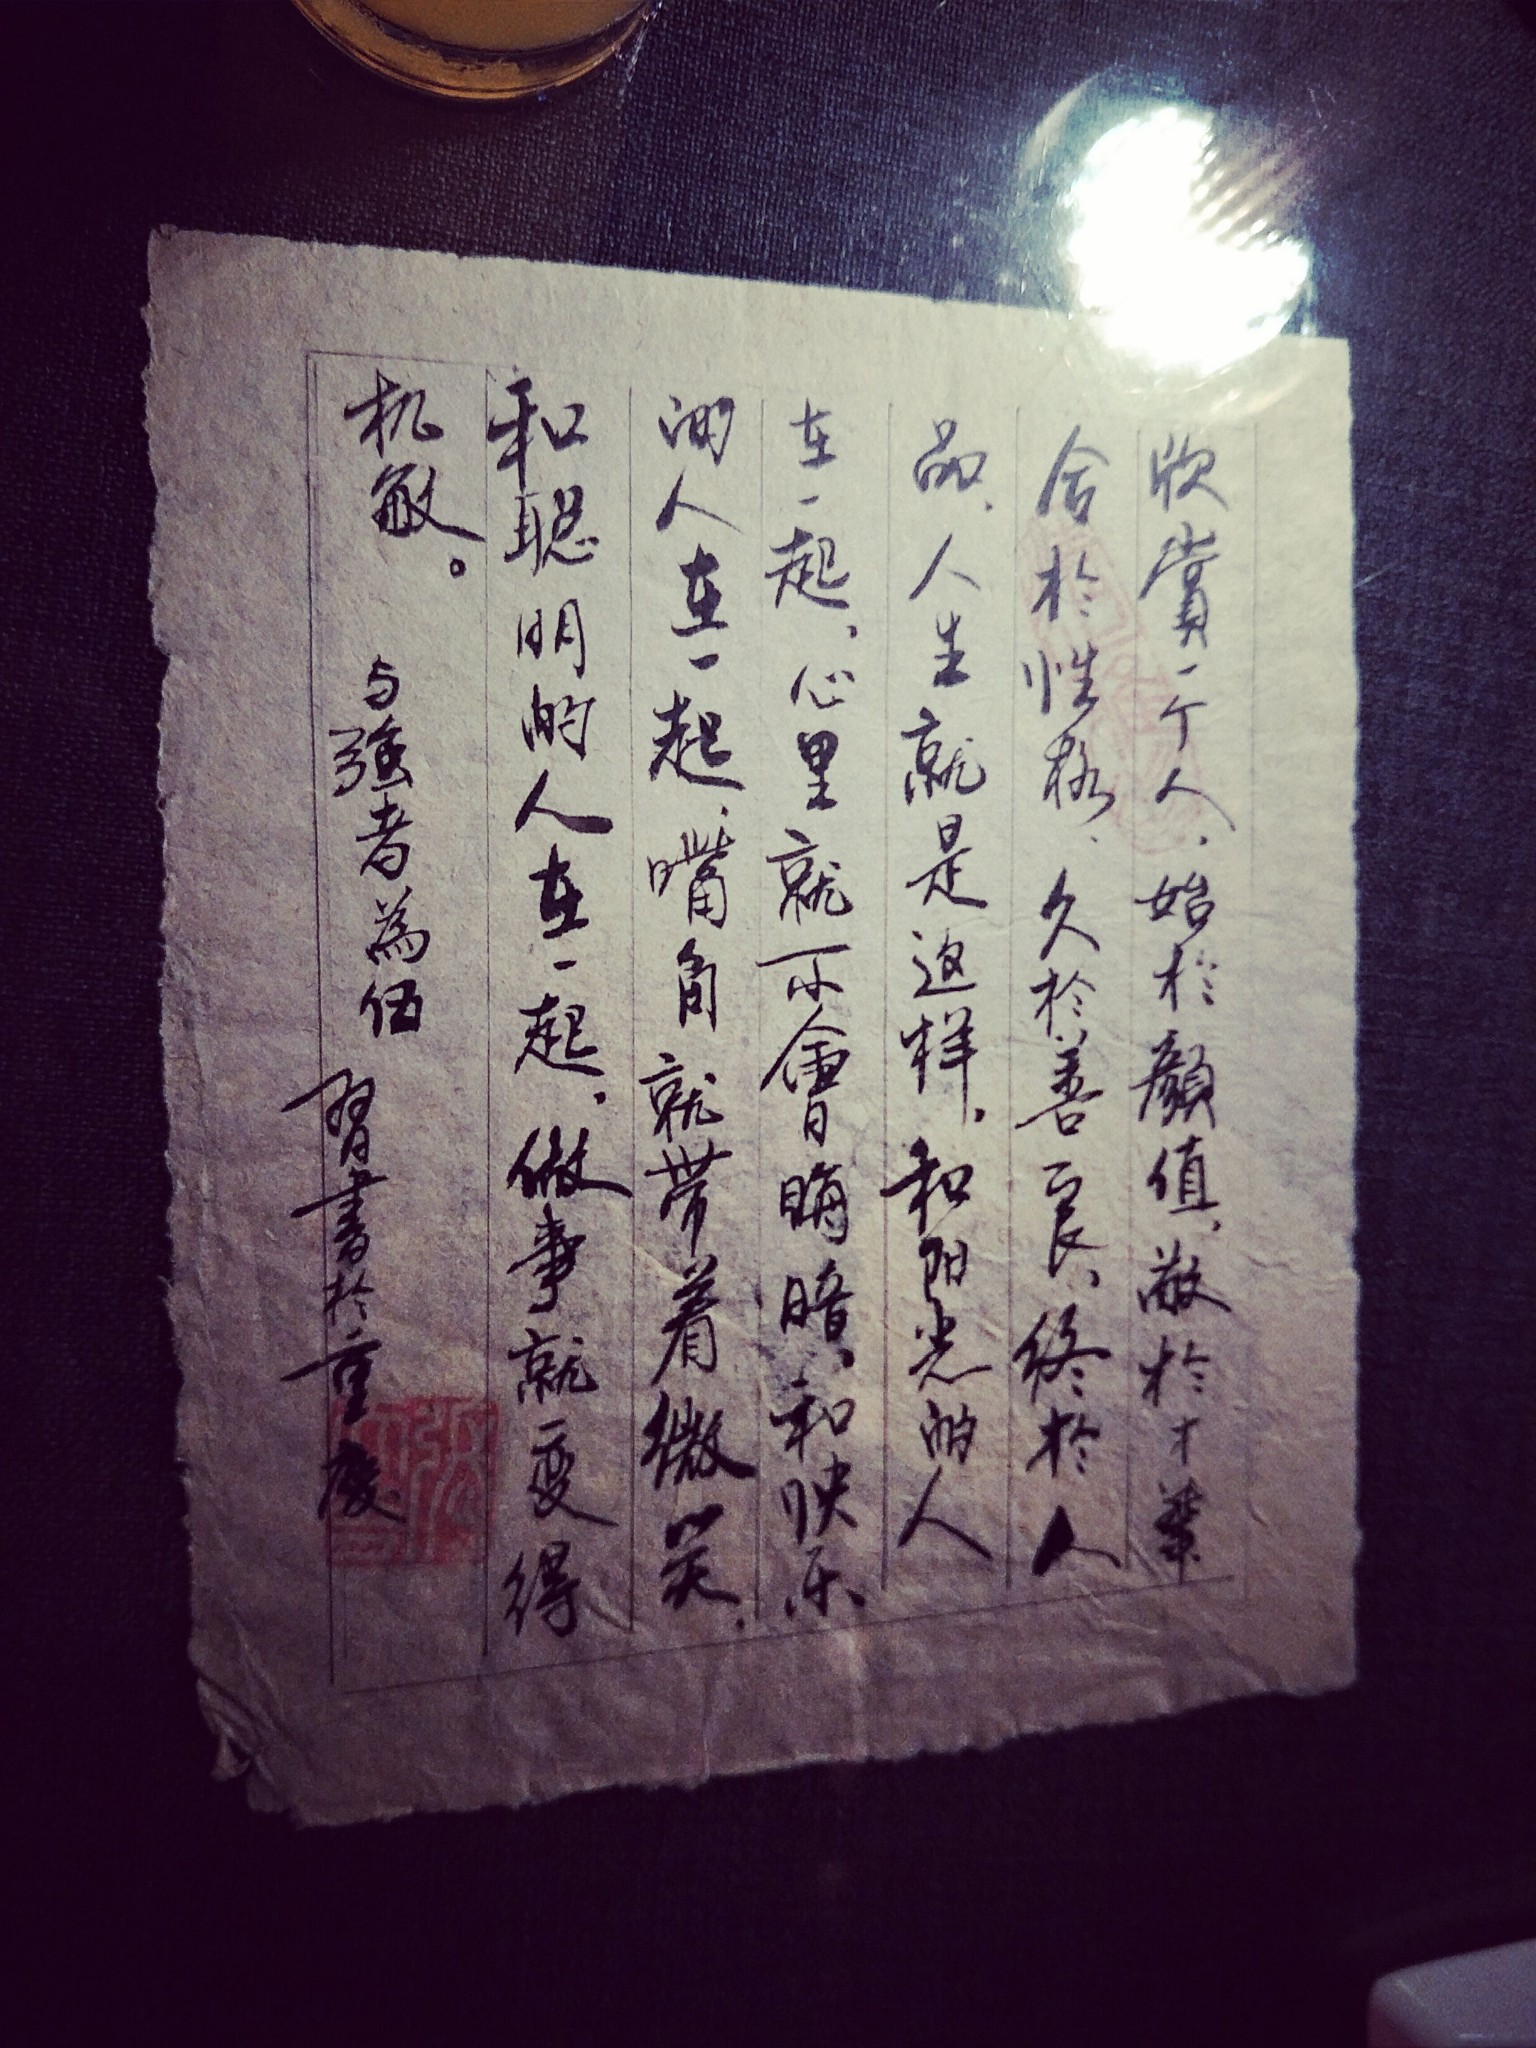 欣赏一个人，始於顏值，敬於才華
合於性格，久於善良，终於人
品，人生就是这样，和阳光的人
在一起，心里就不會晦暗，和快乐
的人在一起，嘴角就带着微笑，
和聪明的人在一起，做事就变得
机敏。
与強者為伍
習書於重慶